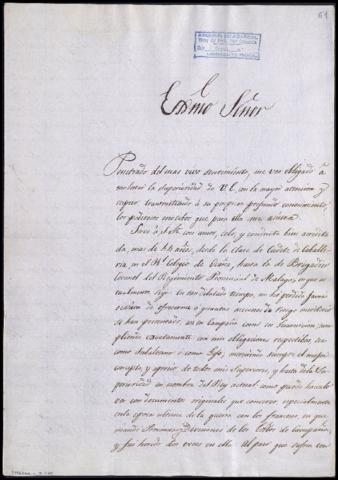 61
Exmo Señor
Penetrado del mas vivo sentimiento, me veo obligado à
molestar la superioridad de V.E. con la mayor atencion y
transmitiendo à su profundo conocimiento,
los poderosos que para ello me
Sirvo à S.M. con amor, celo, y conducta bien acredita
da, mas de 44 años, desde la clase de Cadete de Caballe
ria, en el Rl. Colegio de Ocaña, hasta la de Brigadier
Coronel del Regimiento Provincial de Malaga, en que ac
tualmente sigo. En tan dilatado tiempo, no he perdido jamas
ocasion de ofrecerme à quantas acciones de riesgo
se han presentado, en campaña como en Guarnicion; cum
pliendo exactamente con mis obligaciones respectivas, asi
como Subalterno ó como Gefe; mereciendo siempre el mejor
concepto, y aprecio de todos mis Superiores, y hasta de la Su
perioridad en nombre del Rey actual: como puedo hacerlo
ver con documentos originales que conservo, especialmente
en la epoca ultima de la guerra con los franceses en que
mandé y Divisiones de los de Campaña,
y fui herido dos veces en ella. Al paso que